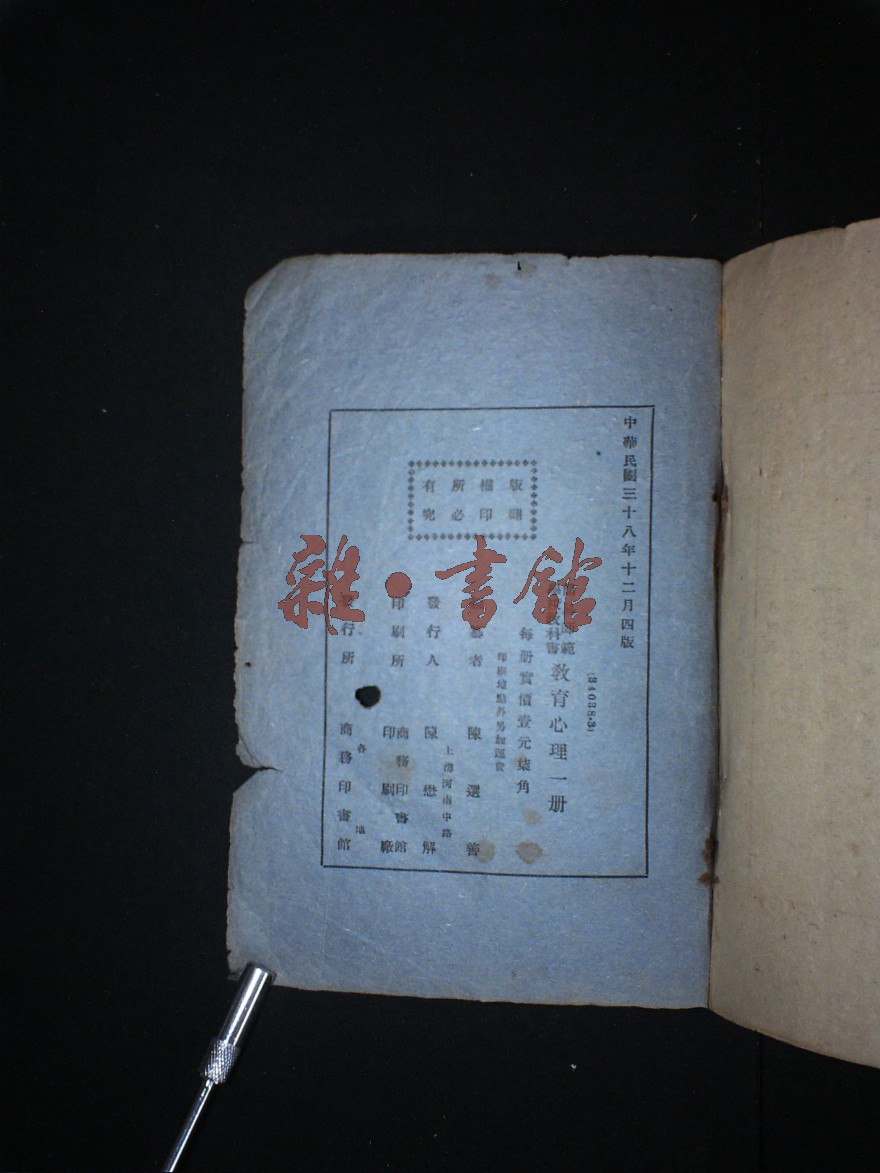 中華民國三十八年十二月四版
(34038·3)
範
教科書
教育心理一册
每册實價壹元柒角
印刷地點外另加運費
版權所有
翻印必究
者 陳選善
發行人 陳懋解
上海河南中路
印刷所 商務印書館
印刷廠
發行所 商務印書館
各地
雜·書館